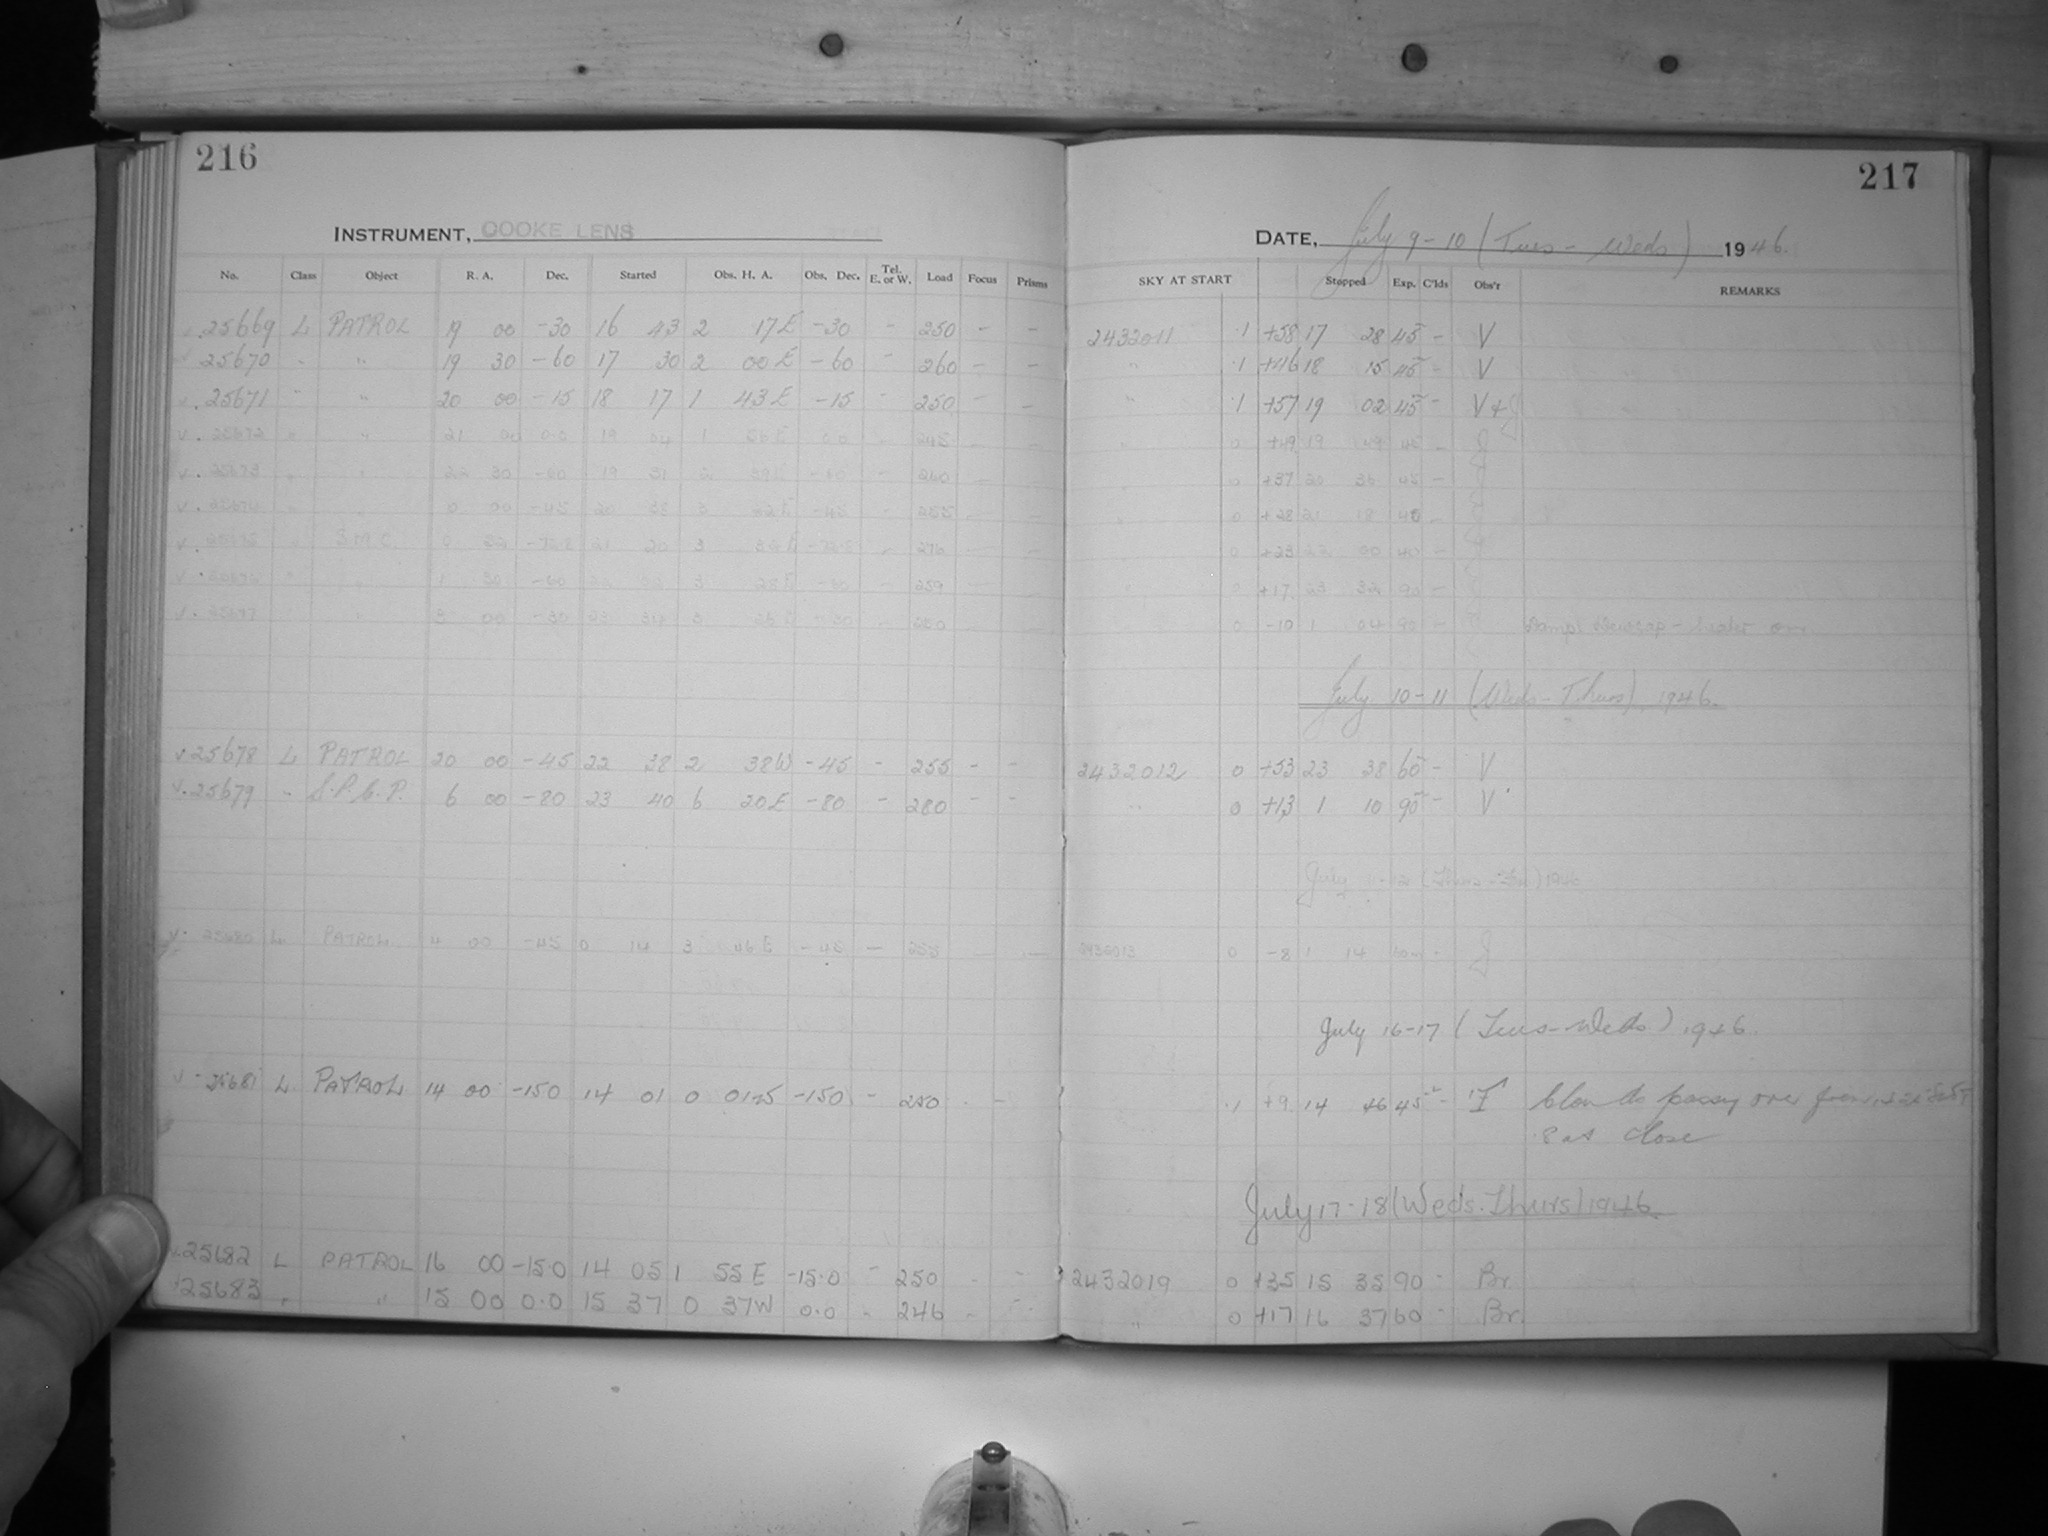 216
INSTRUMENT, COOKE LENS
No. Class Object R. A. Dec. Started Obs. H. A. Obs. Dec. Tel. E. or W. Load Focus Prisms
25669 L PATROL 19 00 -30 16 43 2 17E -30 - 250 - -
25670 " " 19 30 -60 17 30 2 00E -60 - 260 - -
25671 " " 20 00 -15 18 17 1 43E -15 - 250 - -
25672 " " 21 00 0.0 19 04 1 56E 0.0 - 245 - -
25673 " " 22 30 -60 19 51 2 39E -60 - 260 - -
25674 " " 0 00 -45 20 38 3 22E -45 - 255 - -
S.M.C. 21 20 3 - 276 - -
1 30 -60 3 28E - 259 - -
25677 " 3 00 -30 -30 - 250 - -
25678 L PATROL 20 00 -45 22 38 2 38W -45 - 255 - -
25679 " S.P.C.P. 6 00 -80 23 40 6 20E -80 - 280 - -
25680 L PATROL 4 00 -45 0 14 3 46E -45 - 255 - -
25681 L PATROL 14 00 -150 14 01 0 -150 - 250 - -
25682 L PATROL 16 00 -15.0 14 05 1 55E -15.0 - 250 - -
25683 " " 15 00 0.0 15 37 0 37W 0.0 - 246 - -
217
DATE, July 9-10 (Tues - Weds) 1946.
SKY AT START Stopped Exp. C'lds Obs'r REMARKS
2432011 .1 +58 17 28 45 - V
" .1 +46 18 15 45 - V
" .1 +57 19 02 45 - V + J
" 0 +49 19 49 45 - J
" 0 +37 20 36 45 - J
" 0 +28 21 18 40 - J
" 0 +23 22 00 40 - J
" 0 +17 23 32 90 - J
" 0 -10 1 04 90 - J
July 10-11 (Weds-Thurs), 1946.
2432012 0 +53 23 38 60 - V
" 0 +13 1 10 90 - V
July 11-12 (Thurs-Fri) 1946
2432013 0 -8 1 14 60 - J
July 16-17 (Tues-Weds) 1946.
.1 +9 14 46 45 - Clouds passing over from
8 at close
July 17-18 (Weds.-Thurs) 1946.
2432019 0 +35 15 35 90 - Br.
" 0 +17 16 37 60 - Br.